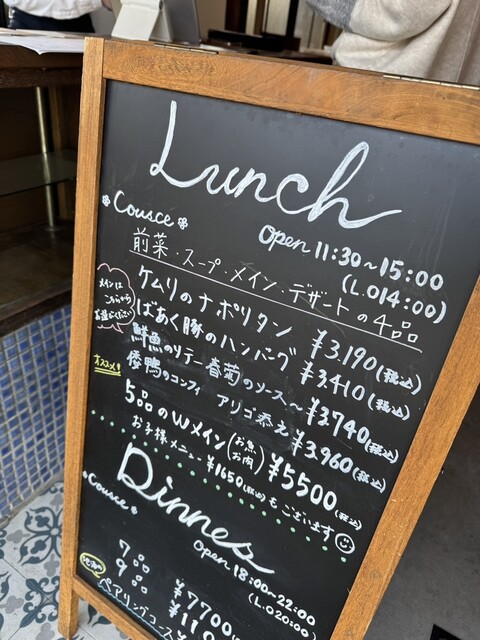 Lunch
Open 11:30~15:00
(L.O14:00)
Cousce
前菜・スープ・メイン・デザートの4品
メインは
こちらから
お選びください
ケムリのナポリタン ¥3.190(税込)
ばあく豚のハンバーグ ¥3.410(税込)
鮮魚のソテー春菊のソース~ ¥3.740(税込)
オススメ! 倭鴨のコンフィ アリゴ添え ¥3.960(税込)
5品のWメイン(お魚 お肉) ¥5500(税込)
お子様メニュー ¥1650(税込)もございます
Dinner
Open 18:00~22:00
(L.O20:00)
Cousce
7品 ¥7700
9品
ペアリングコース